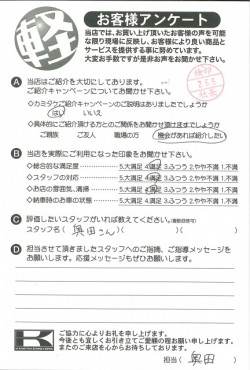 軽
お客様アンケート
当店では、お買い上げ頂いたお客様の声を可能
な限り現場に反映し、お客様により良い商品と
サービスを提供する事に努めています。
大変お手数ですが是非お声をお聞かせ下さい。
A 当店はご紹介を大切にしております。
ご紹介キャンペーンについてお聞かせ下さい。
◇カミタケご紹介キャンペーンのご説明はありましたでしょうか
はい いいえ
◇具体的にご紹介頂ける方とのご関係をお聞かせ頂けますでしょうか
ご親族 ご友人 職場の方 機会があれば紹介したい
B 当店を実際にご利用になった印象をお聞かせ下さい。
◇総合的な満足度 5.大満足 4.満足 3.ふつう 2.やや不満 1.不満
◇スタッフの対応 5.大満足 4.満足 3.ふつう 2.やや不満 1.不満
◇お店の雰囲気、清掃 5.大満足 4.満足 3.ふつう 2.やや不満 1.不満
◇納車時のお車の状態 5.大満足 4.満足 3.ふつう 2.やや不満 1.不満
C 評価したいスタッフがいれば教えてください。
スタッフ名( 奥田さん )( )( )
D 担当させて頂きましたスタッフへのご指摘、ご指導メッセージを
お願いします。応援メッセージもぜひお願いします。
K
ご協力に心よりお礼を申し上げます。
今後とも宜しくお引き立てご愛顧の程お願い申し上げます。
またのご来店を心からお待ちしております。
担当( 奥田 )